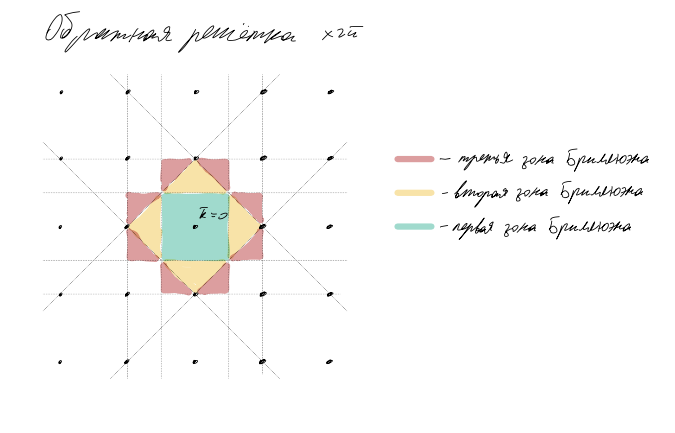 Обратная решётка ×2π
k̄=0
– третья зона Бриллюэна
– вторая зона Бриллюэна
– первая зона Бриллюэна